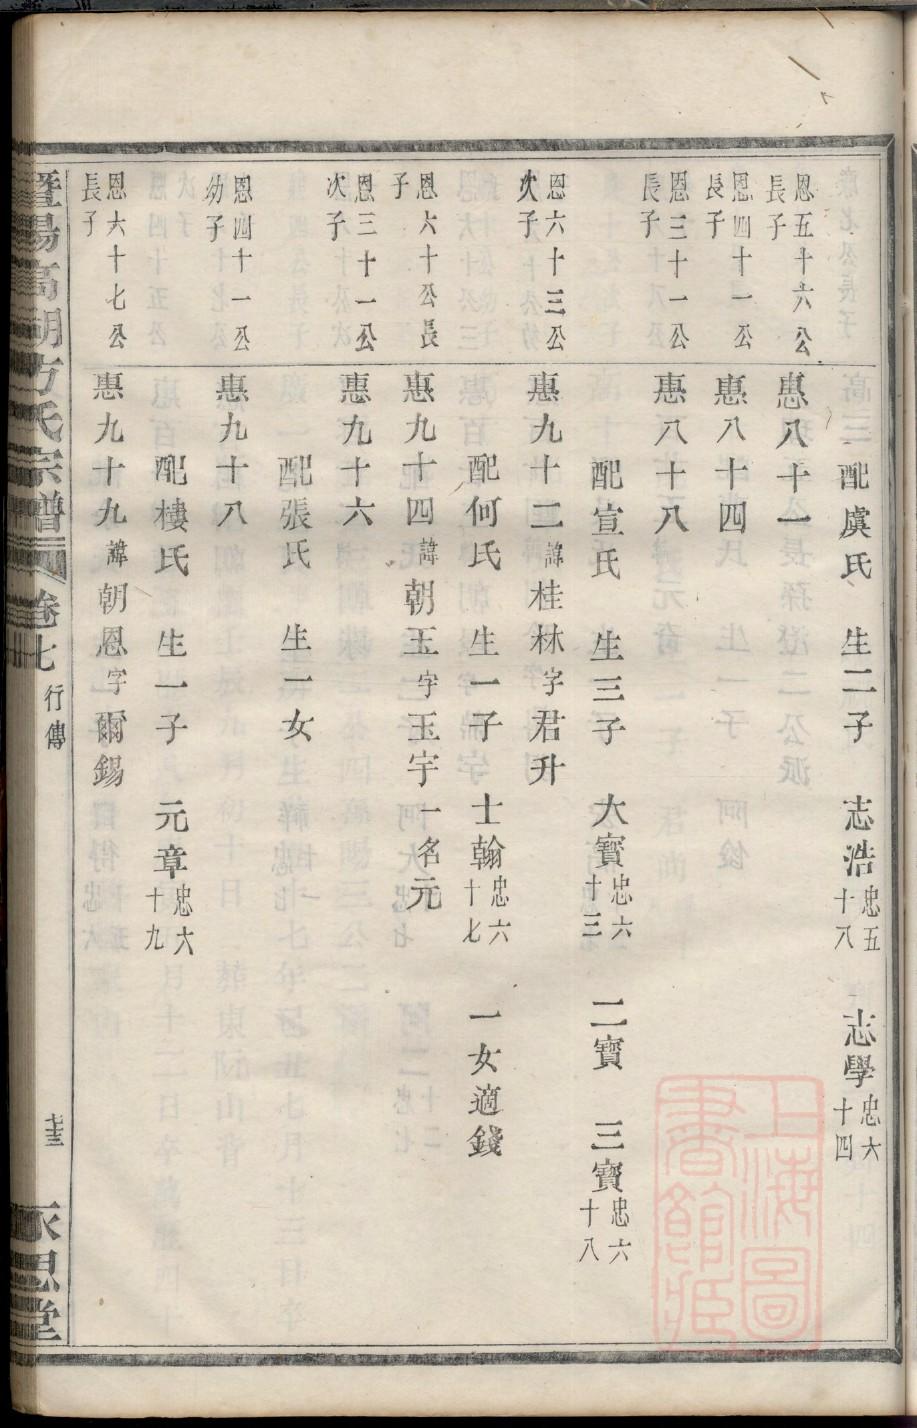 配虞氏 生二子 志浩忠五十八 志學忠六十四
恩五十六公長子 惠八十一
恩四十一公長子 惠八十四
恩三十一公長子 惠八十八
配宣氏 生三子 大寳忠六十三 二寳 三寳忠六十八
恩六十三公次子 惠九十二諱桂林字君升
配何氏 生一子 士翰忠六十七 一女適錢
恩六十公長子 惠九十四諱朝玉字玉宇一名元
恩三十一公次子 惠九十六
配張氏 生一女
恩四十一公幼子 惠九十八
配樓氏 生一子 元章忠六十九
恩六十七公長子 惠九十九諱朝恩字爾錫
暨陽高湖方氏宗譜 卷七 行傳 永思堂
上海圖書館